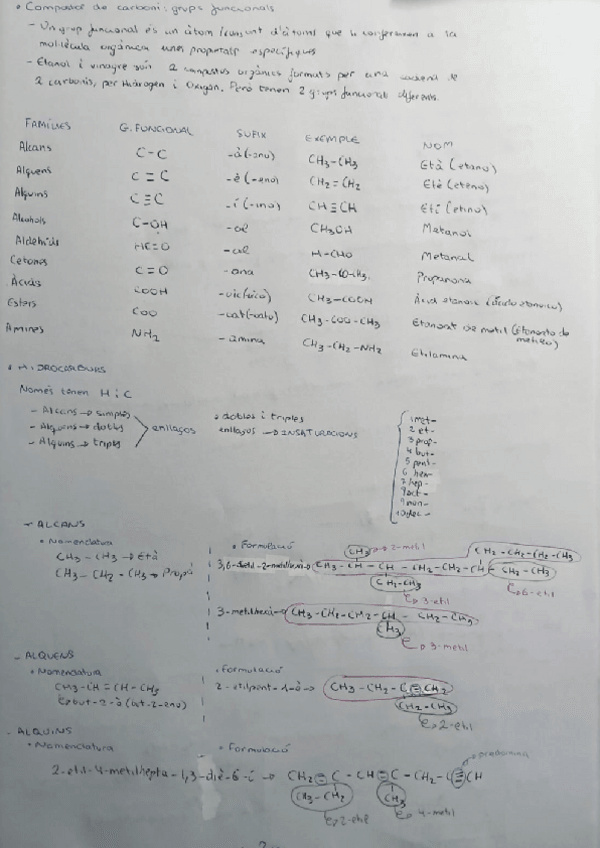 • Compostos de carboni: grups funcionals
- Un grup funcional és un àtom/conjunt d'àtoms que li confereixen a la
molècula orgànica unes propietats específiques
- Etanol i vinagre són 2 compostos orgànics formats per una cadena de
2 carbonis, per Hidrògen i Oxigen. Però tenen 2 grups funcionals diferents.
FAMÍLIES G. FUNCIONAL SUFIX EXEMPLE NOM
Alcans C-C -à(-ano) CH3-CH3 Età (etano)
Alquens C=C -è(-eno) CH2=CH2 Etè (eteno)
Alquins C≡C -í(-ino) CH≡CH Etí (etino)
Alcohols C-OH -ol CH3OH Metanol
Aldehids HC=O -al H-CHO Metanal
Cetones C=O -ona CH3-CO-CH3 Propanona
Àcids COOH -oic(oico) CH3-COOH Àcid etanoic (ácido etanoico)
Esters COO -oat(-oato) CH3-COO-CH3 Etanoat de metil (etanoato de
metilo)
Amines NH2 -amina CH3-CH2-NH2 Etilamina
• HIDROCARBURS
Només tenen H i C
- Alcans → simples
- Alquens → dobles
- Alquins → triples
enllaços
• dobles i triples
enllaços → INSATURACIONS
1 met-
2 et-
3 prop-
4 but-
5 pent-
6 hex-
7 hep-
8 oct-
9 non-
10 dec-
- ALCANS
• Nomenclatura
CH3-CH3 → Età
CH3-CH2-CH3 → Propà
• Formulació
CH3 → 2-metil
CH2-CH2-CH2-CH3
CH3-CH-CH-CH2-CH2-CH-CH2-CH3
CH2-CH3
→ 3-etil
→ 6-etil
3-metilhexà → CH3-CH2-CH2-CH-CH2-CH3
CH3
→ 3-metil
- ALQUENS
• Nomenclatura
CH3-CH=CH-CH3
• Formulació
2-etilpent-1-è → CH3-CH2-C=CH2
CH2-CH3
→ 2-etil
- ALQUINS
• Nomenclatura
• Formulació
predomina
2-etil-4-metilhepta-1,3-diè-6-í → CH2=C-CH=C-CH2-C≡CH
CH3-CH2
CH3
→ 2-etil
→ 4-metil